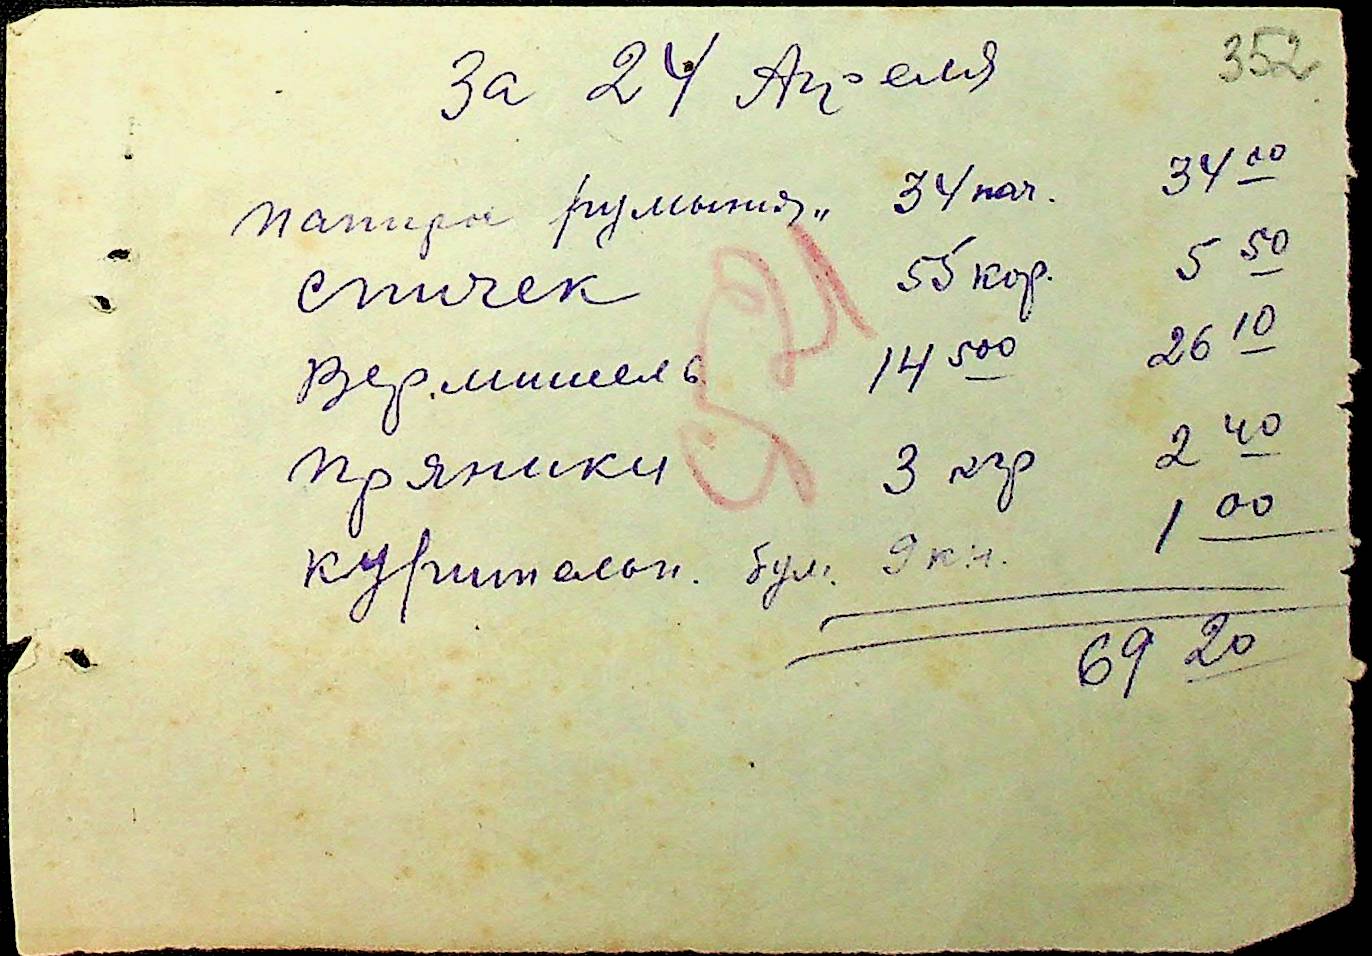 352
За 24 Апреля
папирос румыния„ 34 пач. 34 00
спичек 55 кор. 5 50
Вермишель 14 500 26 10
Пряники 3 кгр 2 40
курительн. бум. 9 кн. 1 00
69 20